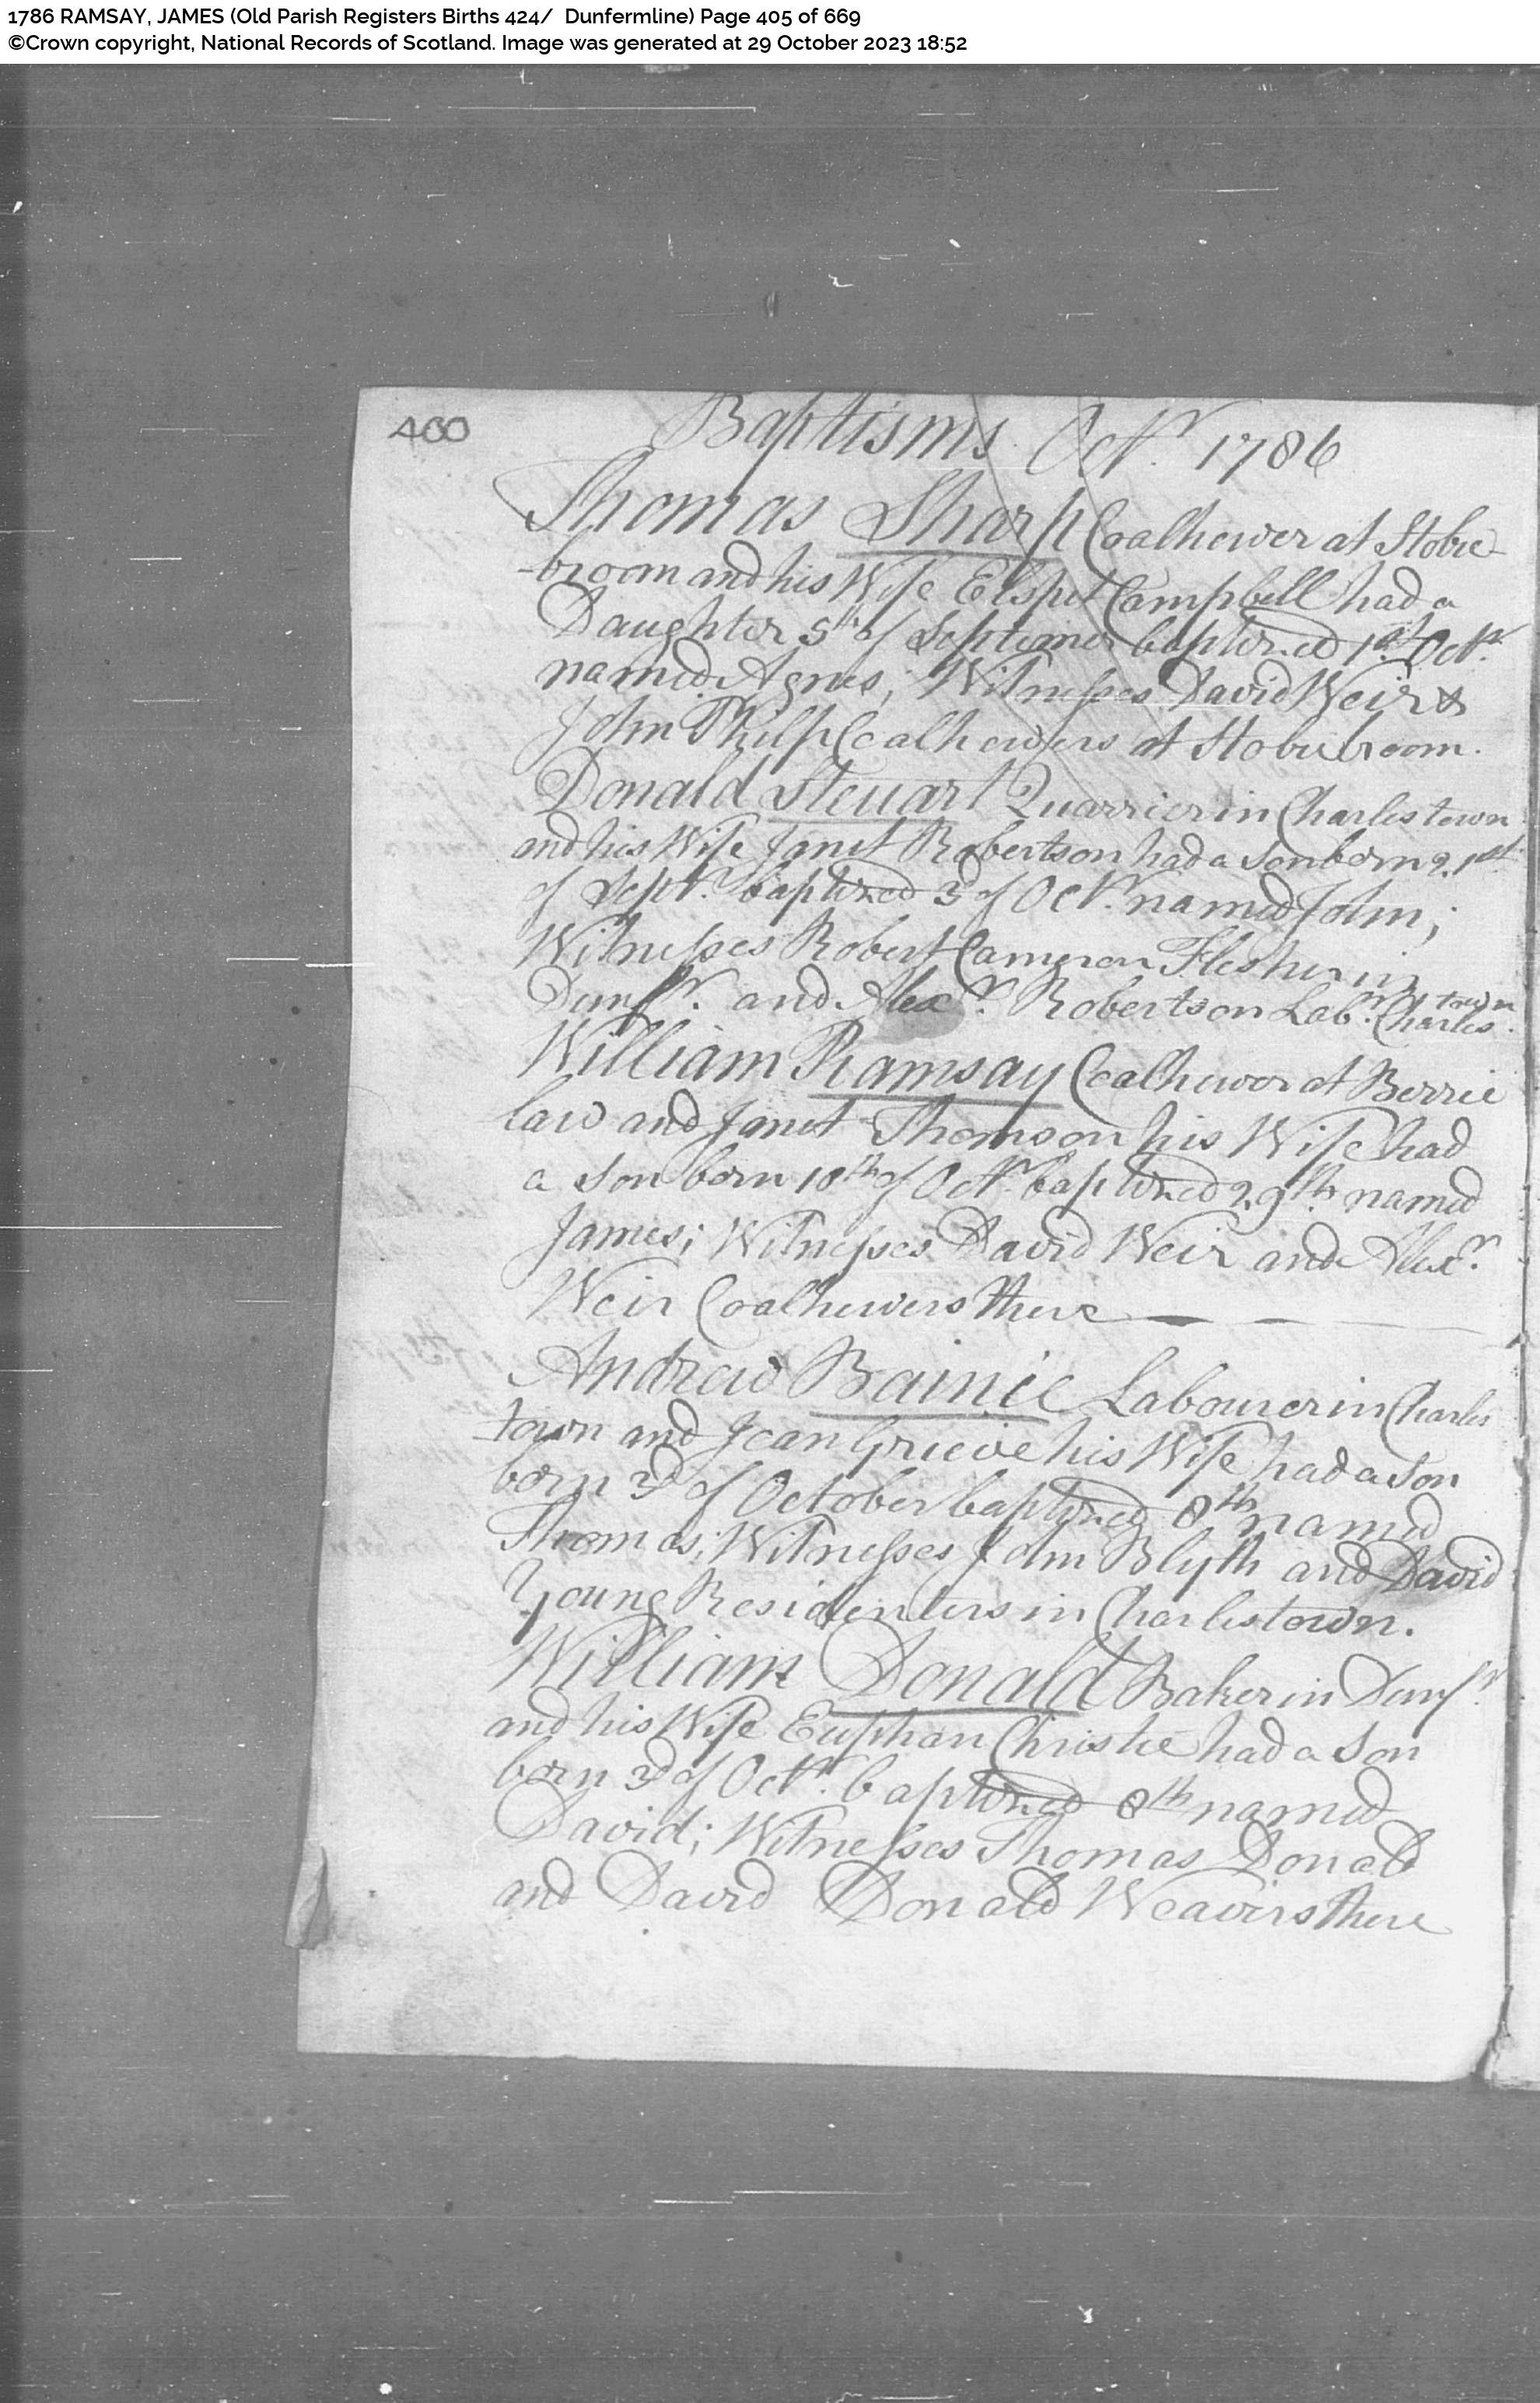 1786 RAMSAY, JAMES (Old Parish Registers Births 424/ Dunfermline) Page 405 of 669
©Crown copyright, National Records of Scotland. Image was generated at 29 October 2023 18:52
400
Baptisms Octr. 1786
Thomas Sharp Coalhewer at Stobie
-broom and his Wife Elspet Campbell had a
Daughter 5th of Septemer baptized 1st Octr.
named Agnes; Witnesses David Weir &
John Philp Coalhewers at Stobiebroom.
Donald Steuart Quarrier in Charlestown
and his Wife Janet Robertson had a Son born 21st
of Septr. baptized 3d of Octr. named John;
Witnesses Robert Cameron Flesher in
Dunfr. and Alexr. Robertson Labr. Charles
town
William Ramsay Coalhewer at Berrie
law and Janet Thomson his Wife had
a Son born 18th of Octr. baptized 29th. named
James; Witnesses David Weir and Alexr.
Weir Coalhewers there
Andrew Bainie Labourer in Charles
town and Jean Grieve his Wife had a Son
born 3d of October baptized 8th named
Thomas; Witnesses John Blyth and David
Young Residenters in Charlestown.
William Donald Baker in Dunfr.
and his Wife Euphan Christie had a Son
born 3d of Octr. baptized 8th named
David; Witnesses Thomas Donald
and David Donald Weavers there